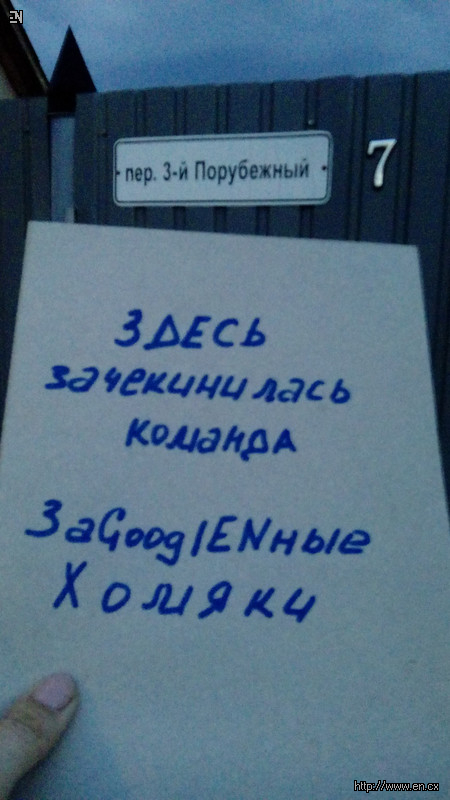 EN
пер. 3-й Порубежный
7
ЗДЕСЬ
зачекинилась
команДА
ЗаGooglENные
Хомяки
http://www.en.cx